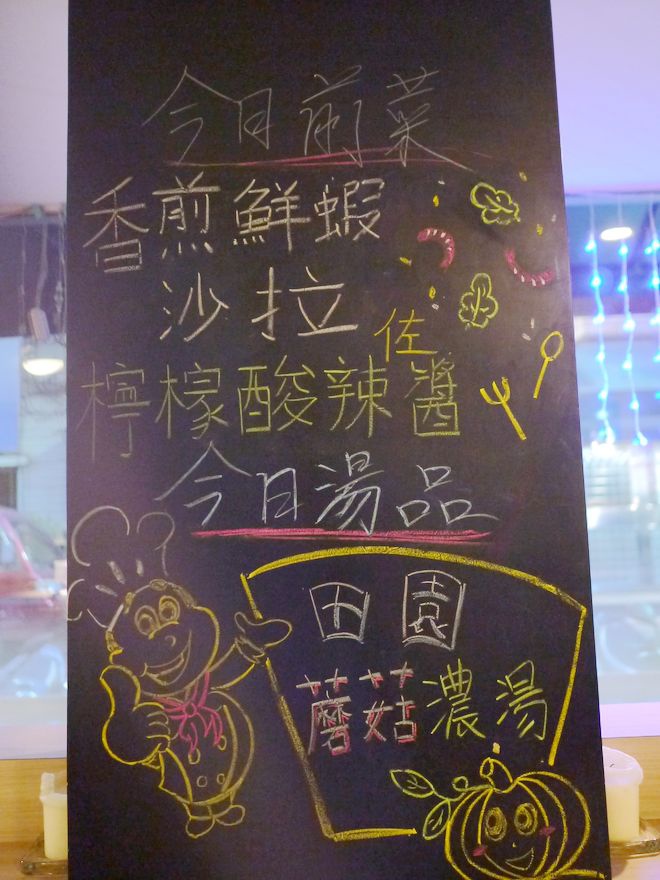 今日前菜
香煎鮮蝦
沙拉佐
檸檬酸辣醬
今日湯品
田園
蘑菇濃湯